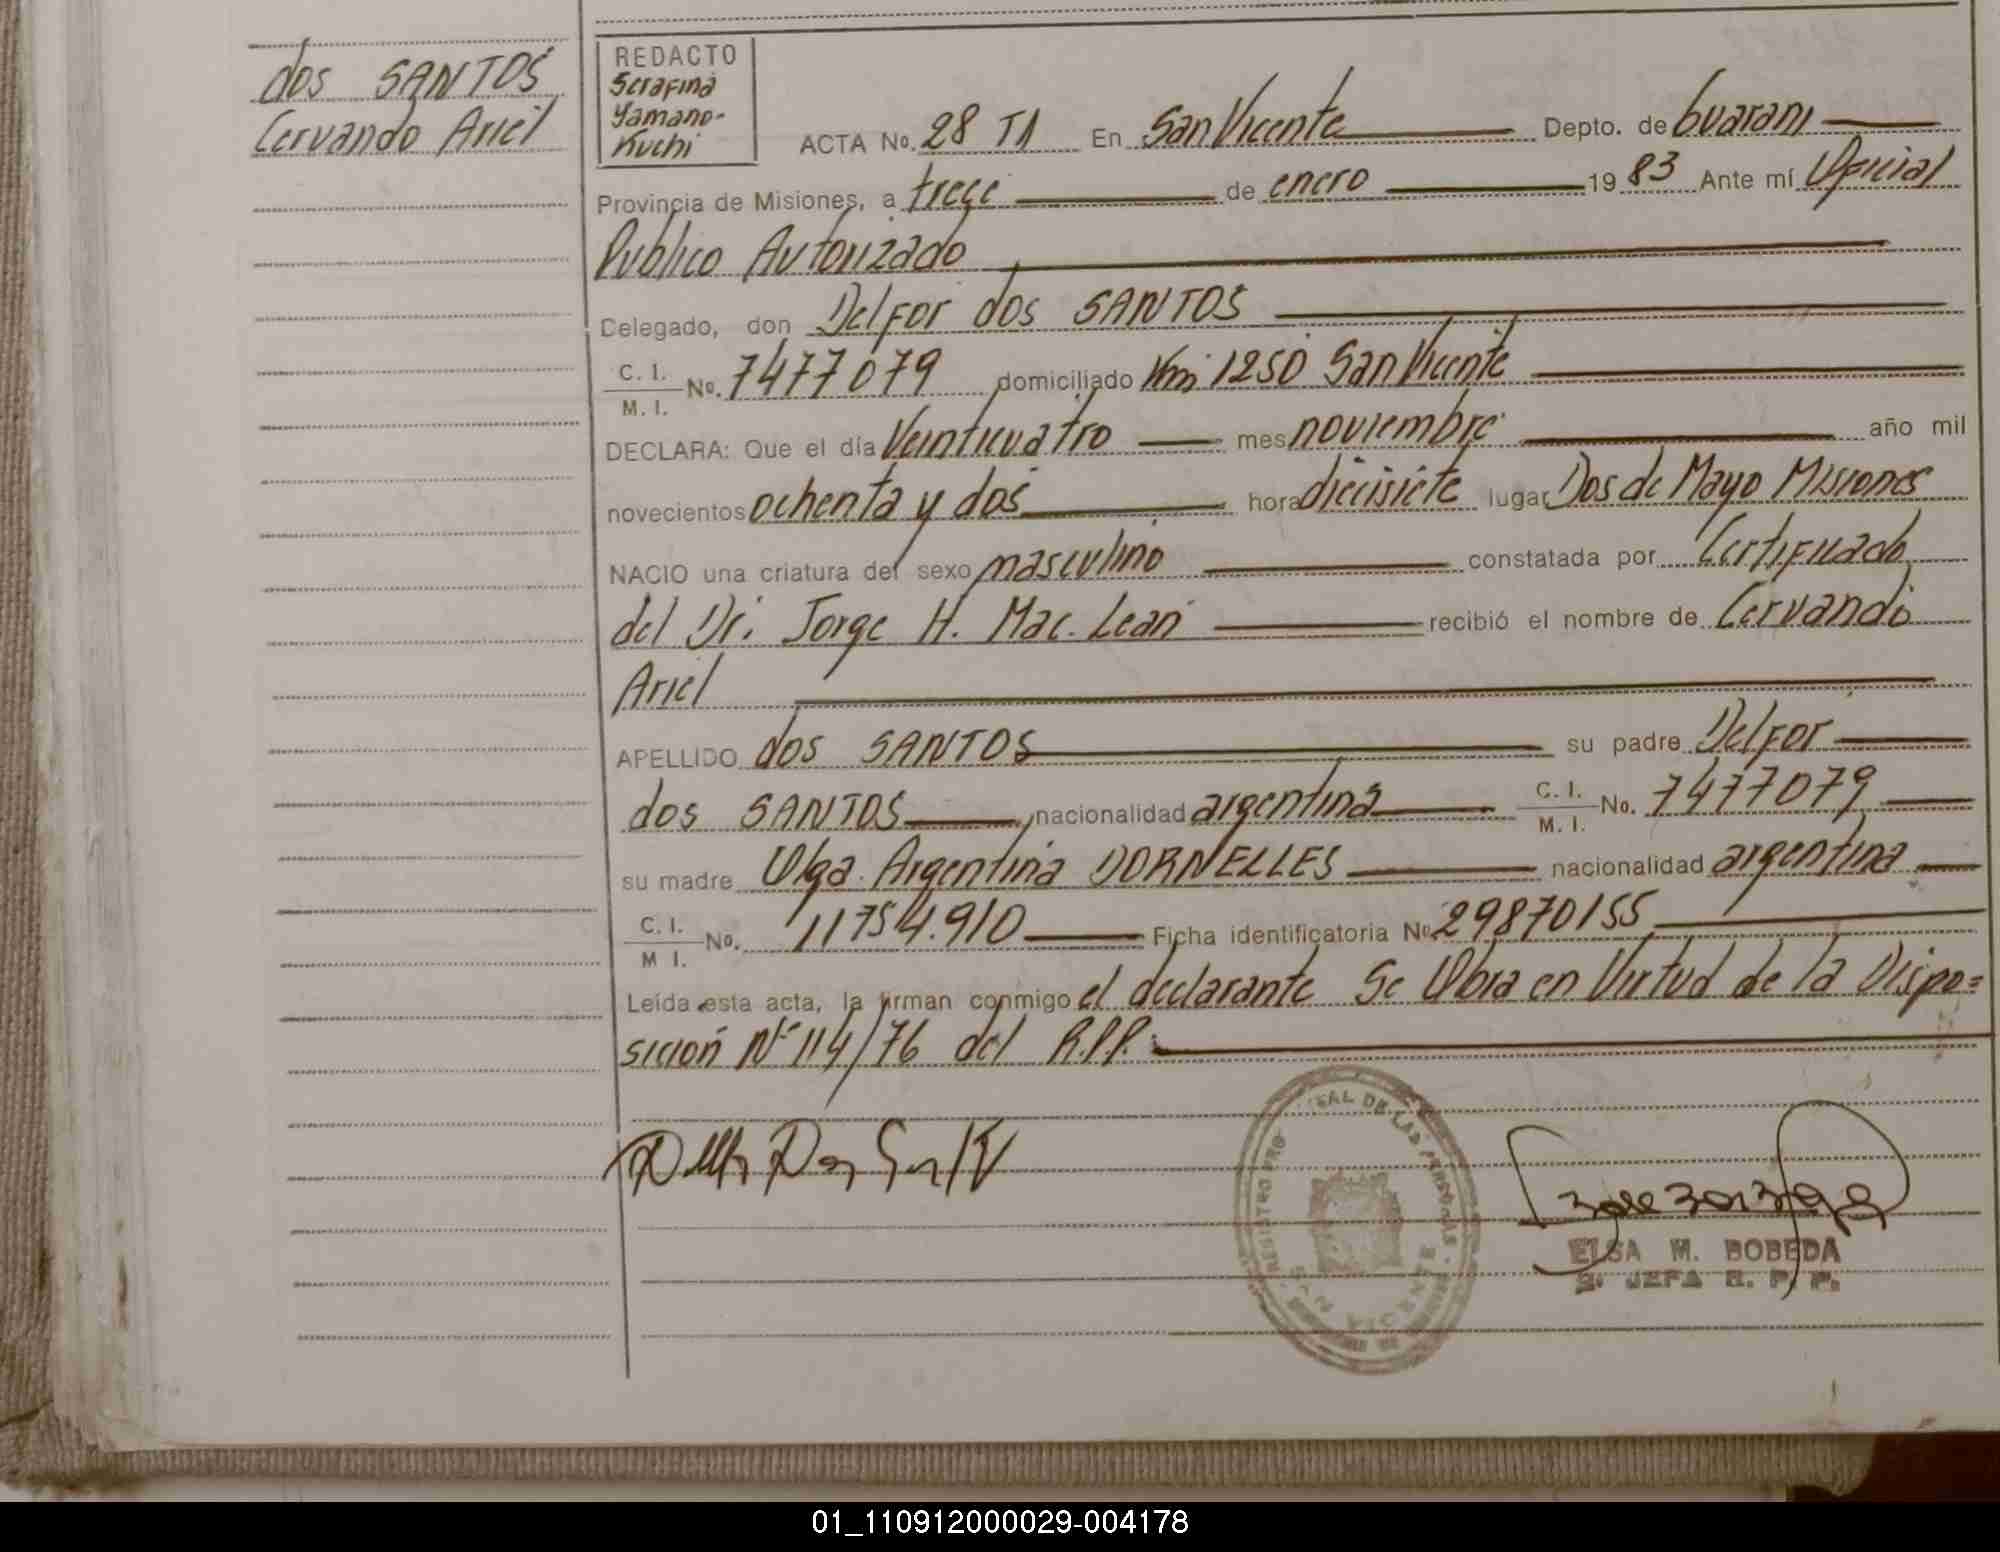 dos SANTOS
Cervando Ariel
REDACTO
Serafina
Yamano-
Kuchi
ACTA No. 28 TI En San Vicente Depto. de Guarani
Provincia de Misiones, a trece de enero 19 83 Ante mí Oficial
Publico Autorizado
Delegado, don Delfor dos SANTOS
C. I.
M. I. No. 7477079 domiciliado Km 1250 San Vicente
DECLARA: Que el día Veinticuatro mes noviembre año mil
novecientos ochenta y dos hora diecisiete lugar Dos de Mayo Misiones
NACIO una criatura del sexo masculino constatada por Certificado
del Dr. Jorge H. Mac. Lean recibió el nombre de Cervando
Ariel
APELLIDO dos SANTOS su padre Delfor
dos SANTOS nacionalidad argentina C. I.
M. I. No. 7477079
su madre Olga Argentina DORNELLES nacionalidad argentina
C. I.
M I. No. 11754.910 Ficha identificatoria No 29870155
Leída esta acta, la firman conmigo el declarante Se Obra en Virtud de la Dispo=
sición Nº 114/76 del R.P.P.
ELSA M. BOBEDA
JEFA R. P. P.
01_110912000029-004178